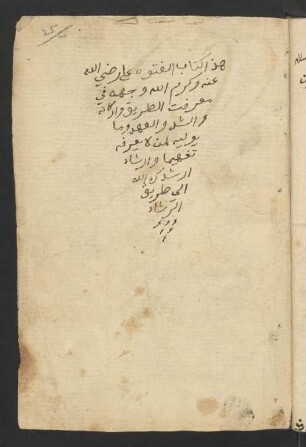 هذا كتاب الفتوه على رضي الله
عنه وكرم الله وجهه في
معرفت الطريق واركانه
والشد والعهد وما
يوليه لمن لا يعرفه
تفهيما وارشاد
ارشدك الله
الى طريق
الرشاد